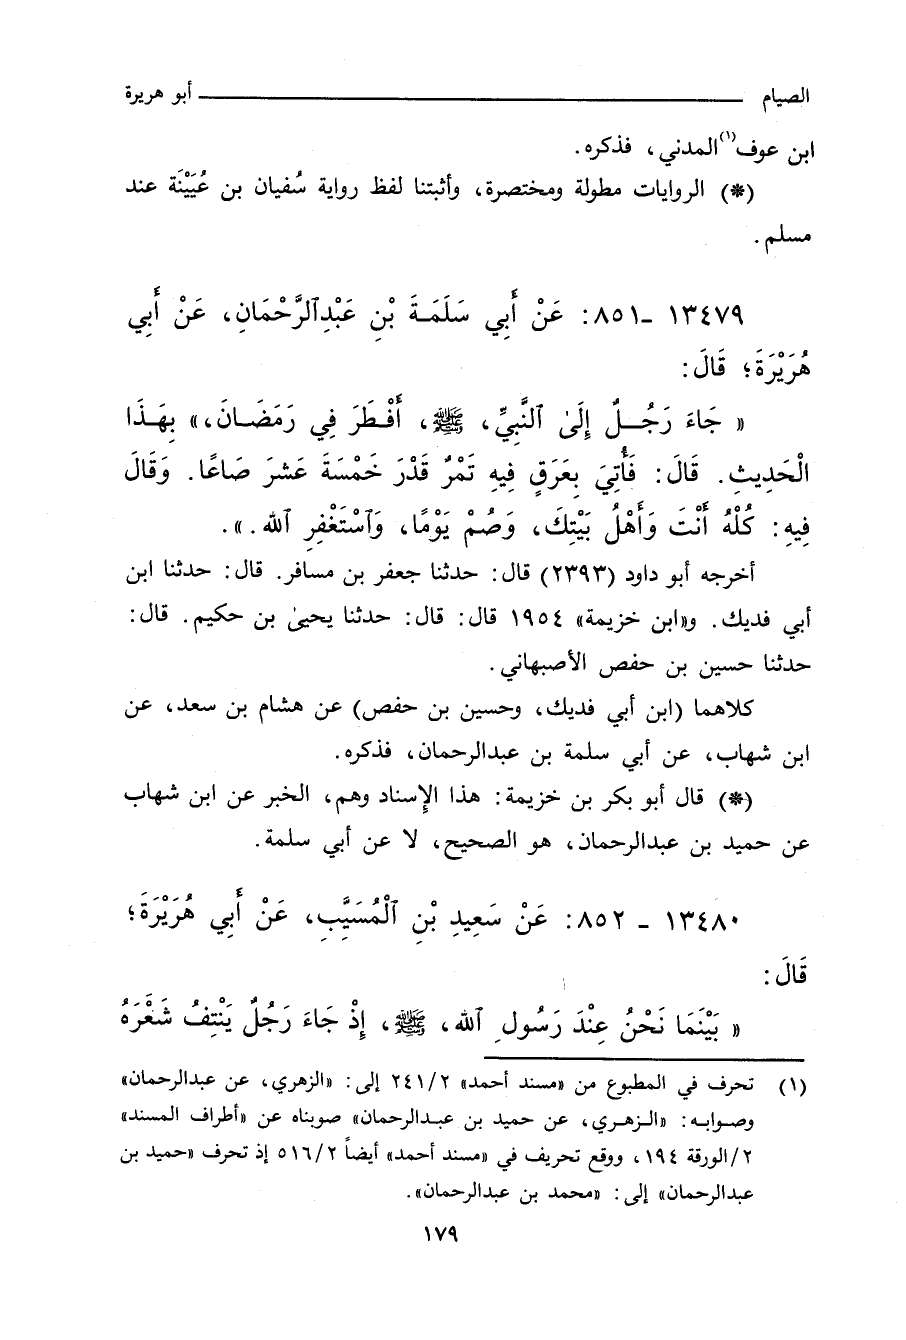 الصيام ـــــــــ أبو هريرة
ابن عوف(١) المدني، فذكره.
(*) الروايات مطولة ومختصرة، وأثبتنا لفظ رواية سُفيان بن عُيَيْنَة عند
مسلم.
١٣٤٧٩ -٨٥١: عَنْ أَبِي سَلَمَةَ بْنِ عَبْدِالرَّحْمَانِ، عَنْ أَبِي
هُرَيْرَةَ؛ قَالَ:
« جَاءَ رَجُلٌ إِلَىٰ ٱلنَّبِيِّ، ﷺ، أَفْطَرَ فِي رَمَضَانَ،» بِهَذَا
الْحَدِيثِ. قَالَ: فَأُتِيَ بِعَرَقٍ فِيهِ تَمْرٌ قَدْرَ خَمْسَةَ عَشَرَ صَاعًا. وَقَالَ
فِيهِ: كُلْهُ أَنْتَ وَأَهْلُ بَيْتِكَ، وَصُمْ يَوْمًا، وَٱسْتَغْفِرِ ٱللهَ.».
أخرجه أبو داود (٢٣٩٣) قال: حدثنا جعفر بن مسافر. قال: حدثنا ابن
أبي فديك. و«ابن خزيمة» ١٩٥٤ قال: قال: حدثنا يحيىٰ بن حكيم. قال:
حدثنا حسين بن حفص الأصبهاني.
كلاهما (ابن أبي فديك، وحسين بن حفص) عن هشام بن سعد، عن
ابن شهاب، عن أبي سلمة بن عبدالرحمان، فذكره.
(*) قال أبو بكر بن خزيمة: هذا الإسناد وهم، الخبر عن ابن شهاب
عن حميد بن عبدالرحمان، هو الصحيح، لا عن أبي سلمة.
١٣٤٨٠ - ٨٥٢: عَنْ سَعِيدِ بْنِ ٱلْمُسَيَّبِ، عَنْ أَبِي هُرَيْرَةَ؛
قَالَ:
« بَيْنَمَا نَحْنُ عِنْدَ رَسُولِ ٱللهِ، ﷺ، إِذْ جَاءَ رَجُلٌ يَنْتِفُ شَعْرَهُ
(١) تحرف في المطبوع من «مسند أحمد» ٢/ ٢٤١ إلى: «الزهري، عن عبدالرحمان»
وصوابه: «الزهري، عن حميد بن عبدالرحمان» صوبناه عن «أطراف المسند»
٢/الورقة ١٩٤، ووقع تحريف في «مسند أحمد» أيضاً ٢/ ٥١٦ إذ تحرف «حميد بن
عبدالرحمان» إلى: «محمد بن عبدالرحمان».
١٧٩